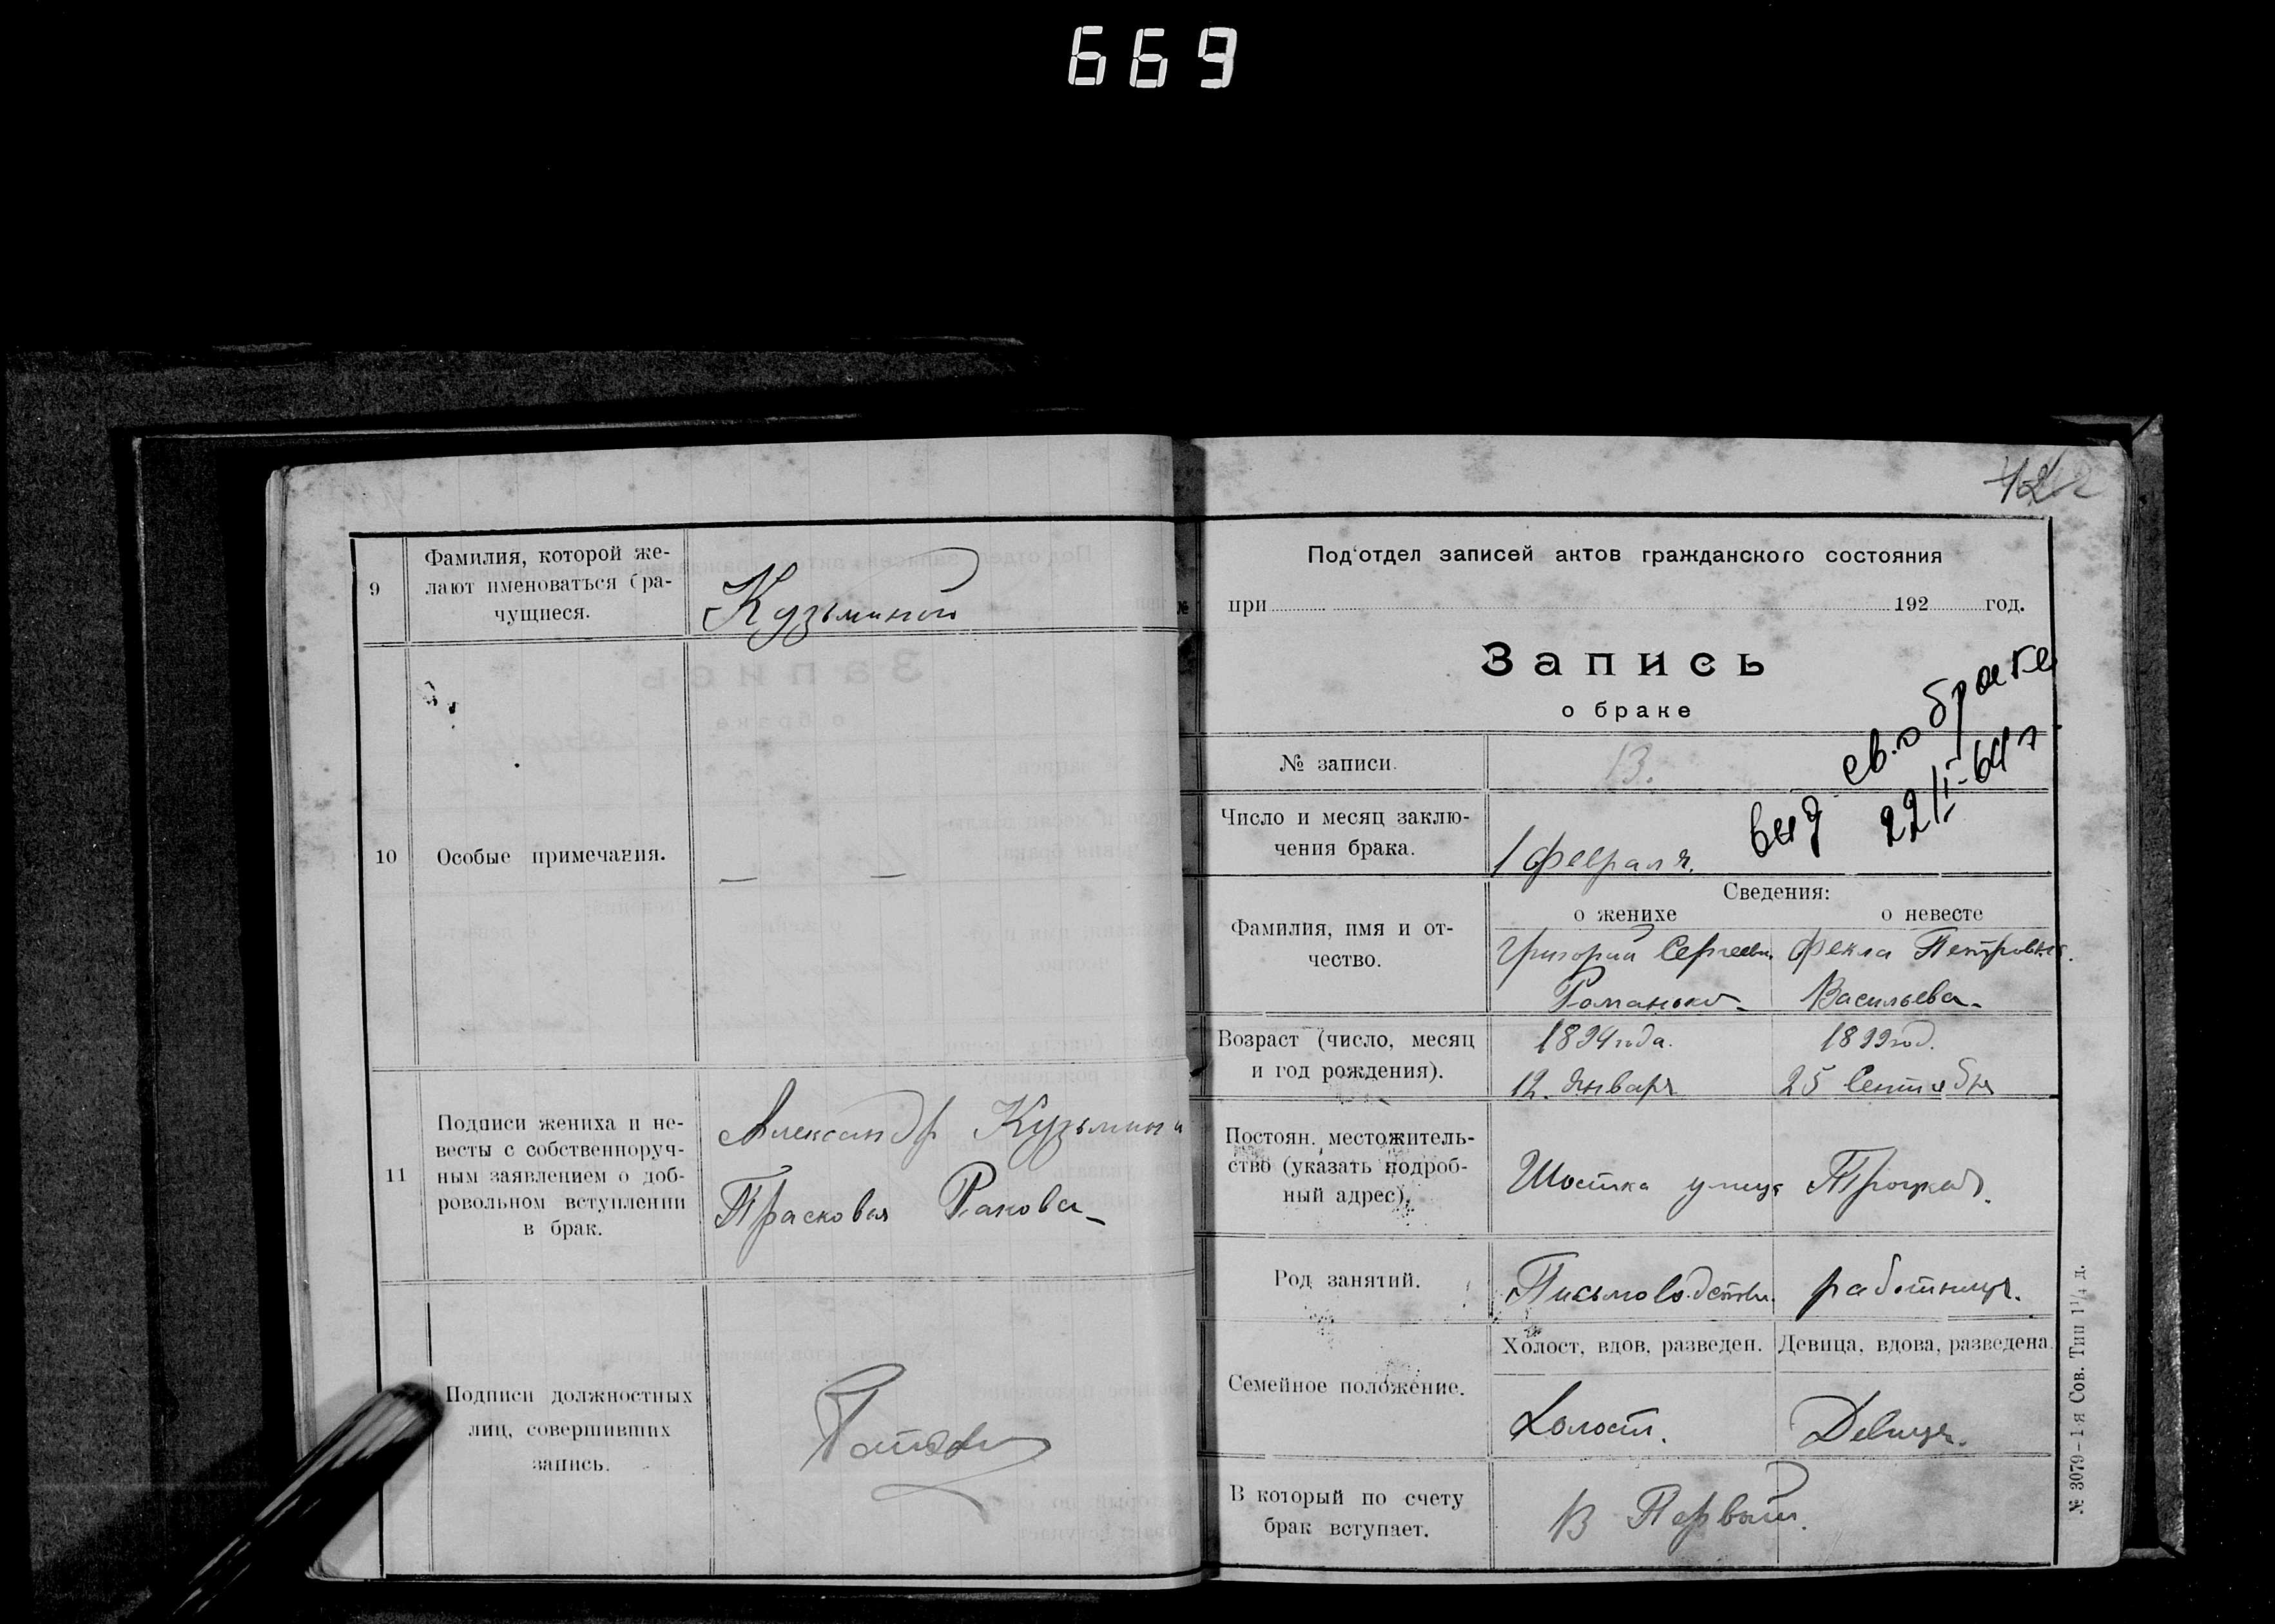 669
9
Фамилия, которой же-
лают именоваться бра-
чущиеся.
Кузьминой
10
Особые примечания.
— —
11
Подписи жениха и не-
весты с собственноруч-
ным заявлением о доб-
ровольном вступлении
в брак.
Александр Кузьмин
Прасковья Ракова
Подписи должностных
лиц, совершивших
запись.
42
Под'отдел записей актов гражданского состояния
при 192 год.
Запись
о браке
выд св. о браке
22/II-64 г
№ записи.
13.
Число и месяц заклю-
чения брака.
1 февраля.
Сведения:
о женихе о невесте
Фамилия, имя и от-
чество.
Григорий Сергеевич Фекла Петровна.
Романько Васильева
Возраст (число, месяц
и год рождения).
1894 года. 1899 год.
12. Января 25 Сентября
Постоян. местожитель-
ство (указать подроб-
ный адрес).
Шостка улица Троцкаго.
Род занятий.
Письмоводитель. работница.
Холост, вдов, разведен. Девица, вдова, разведена.
Семейное положение.
Холост. Девица.
В который по счету
брак вступает.
В Первый.
№ 3079-1-я Сов. Тип 1¼ д.